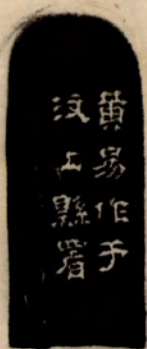 黄易作于
汶上縣署